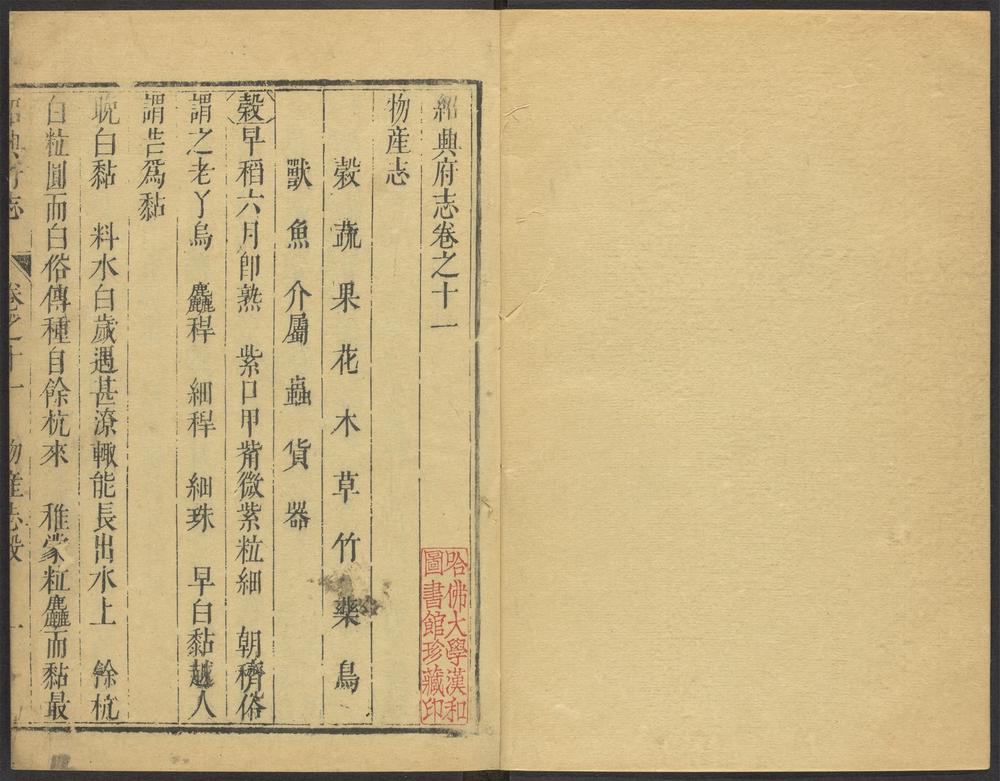 紹興府志卷之十一
物產志
穀 蔬 果 花 木 草 竹 藥 鳥
獸 魚 介屬 蟲 貨 器
穀早稻六月卽熟 紫口甲觜微紫粒細 朝穧俗
謂之老丫烏 麤稈 細稈 細珠 早白黏越人
謂秥爲黏
晚白黏 料水白歲遇甚潦輙能長出水上 餘杭
白粒圓而白俗傳種自餘杭來 稚蒙粒麤而黏最
紹興府志 卷之十一 物產志穀 一
哈佛大學漢和
圖書館珍藏印